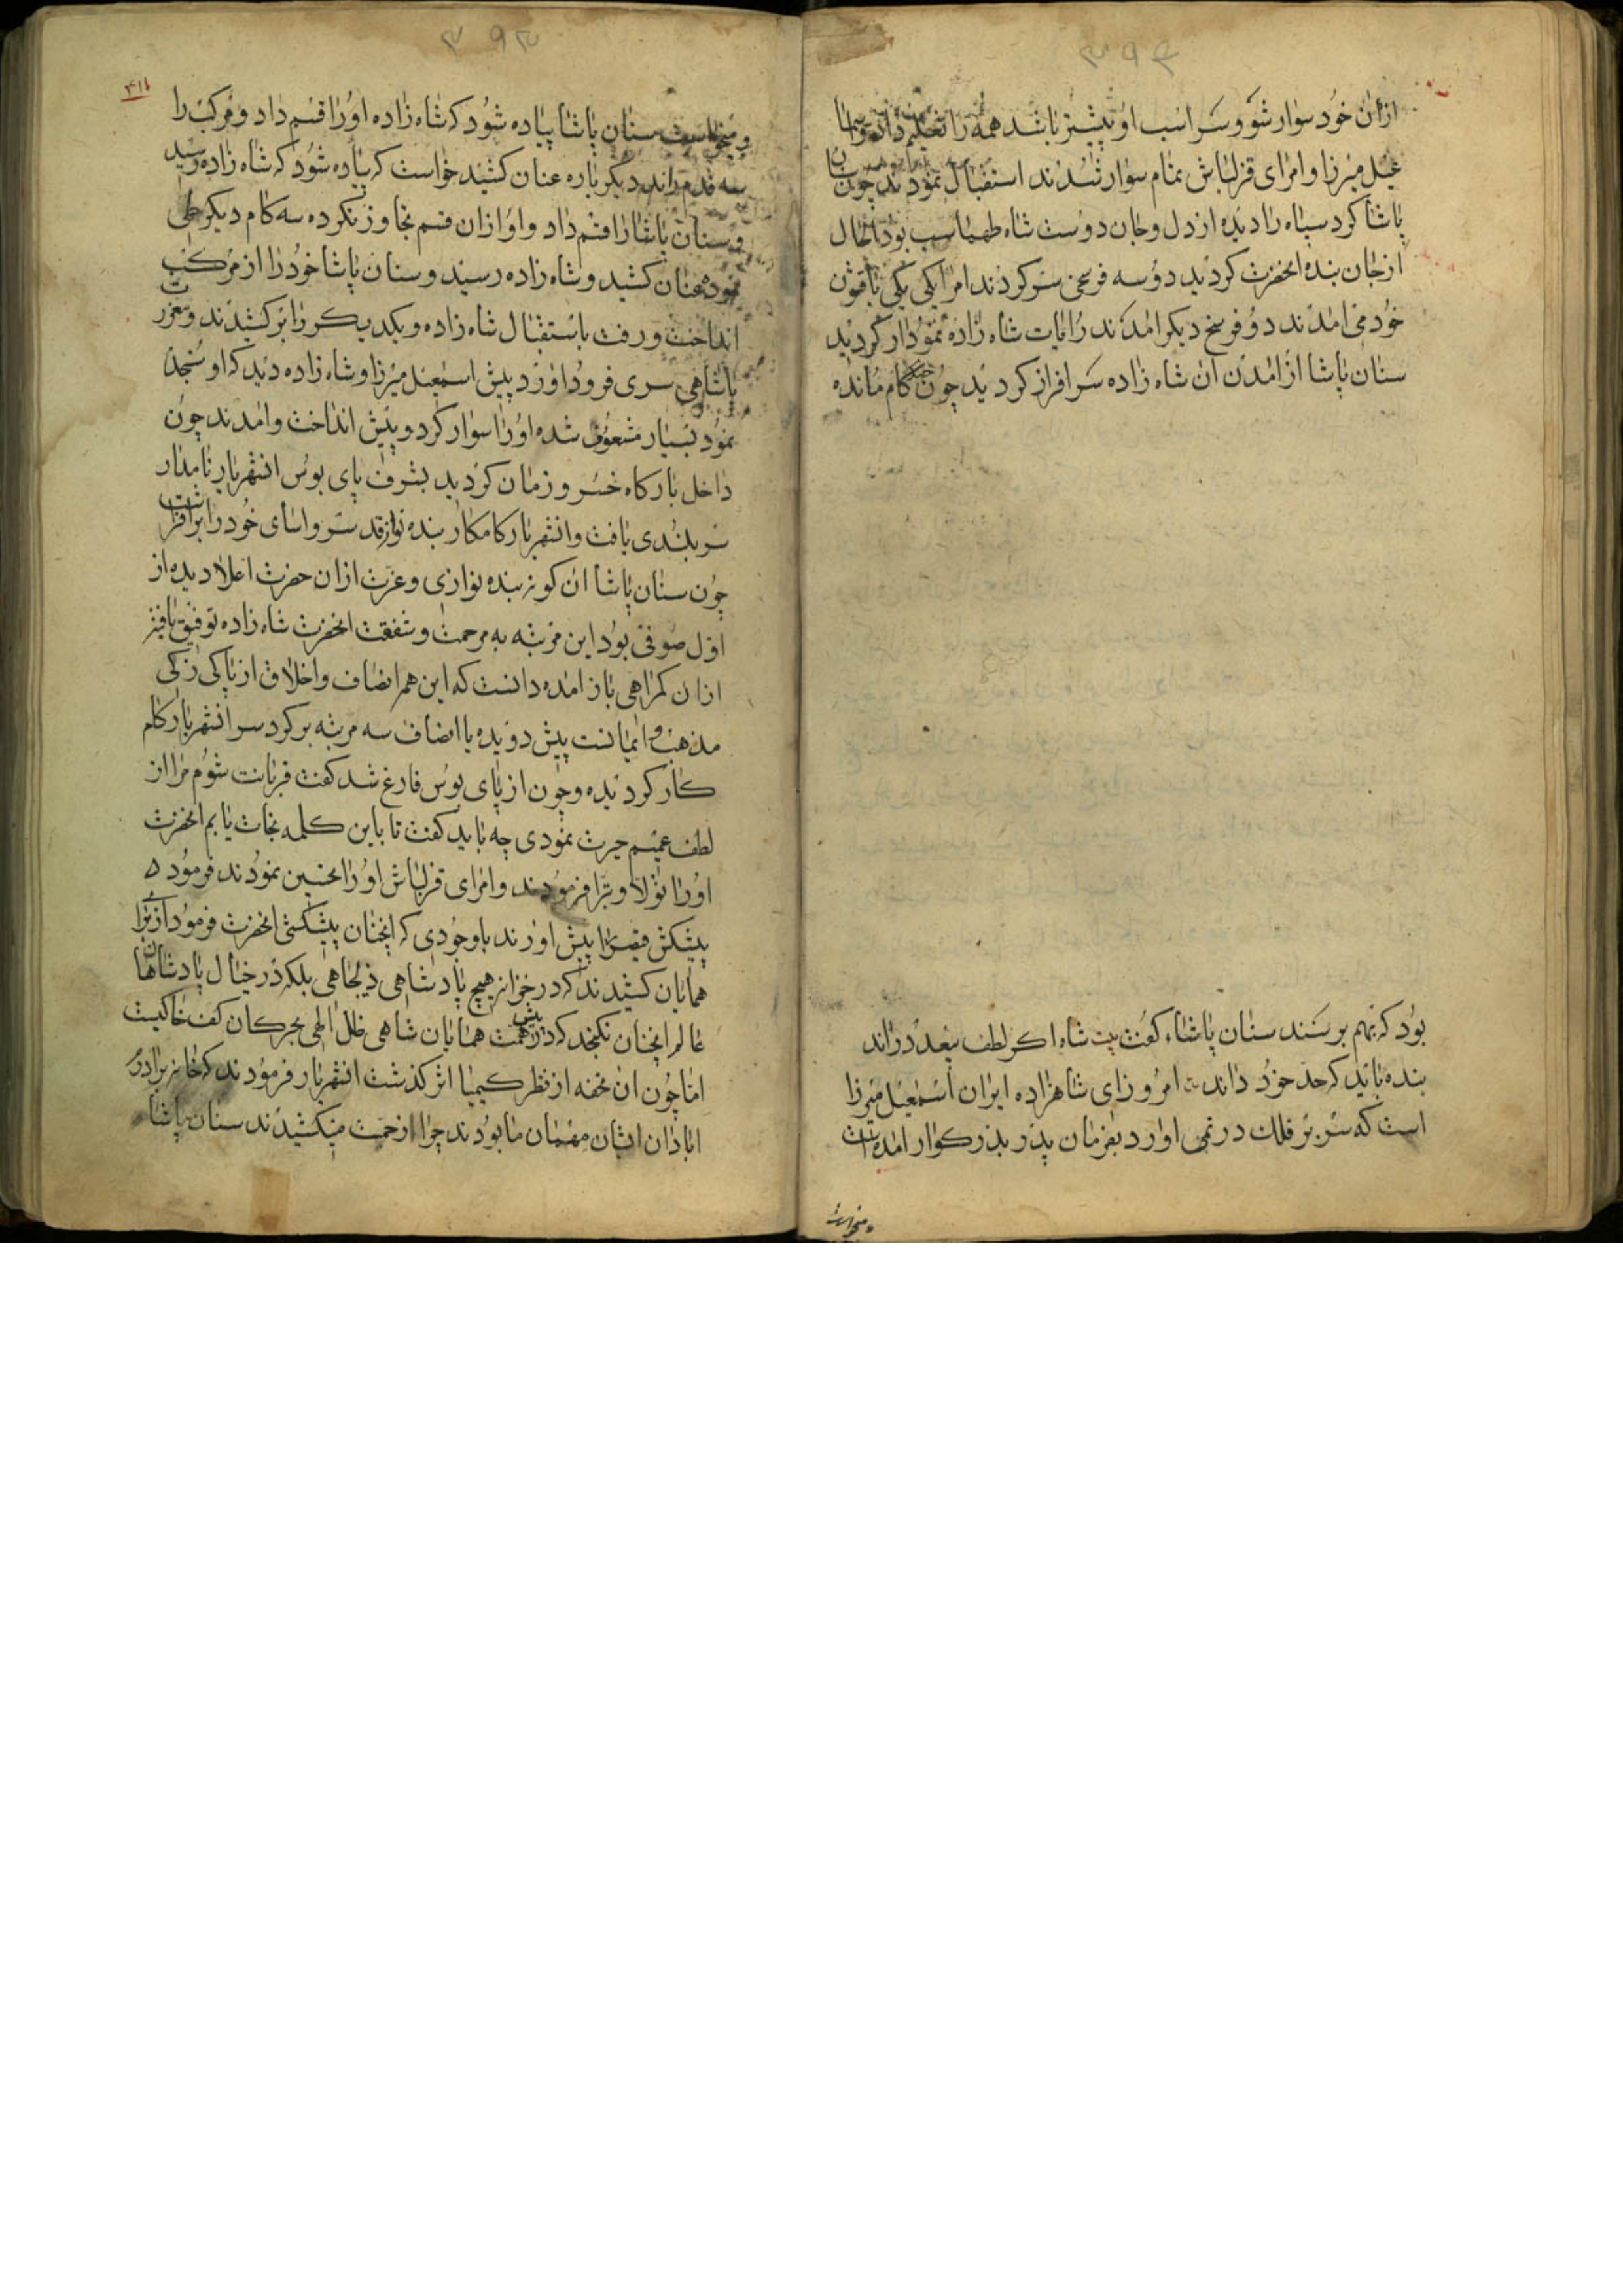 ۳۹۴
ازان خود سوار شو و سر اسب او پیشتر باشد همه را تعلیم داده
عیل میرزا و امرای قزلباش تمام سوار شدند استقبال نمودند چون
پاشا کرد سپاه را دیده از دل و جان دوست شاه طهماسب بود الحال
از جان بنده انحضرت کردید دو سه فرسخی سر کردند امرا یکی یکی با قشون
خود می امدند دو فرسخ دیکر امدند رایات شاه زاده نمودار کردید
سنان پاشا از امدن ان شاه زاده سرافراز کردید چون کام مانده
بود که بهم برسند سنان پاشا کفت بیت شاه اکر لطف بیعدد راند
بنده باید که حد خود داند امروز ای شاهزاده ایران اسمعیل میرزا
است که سر بر فلک در نمی اورد بفرمان پدر بذرکوار امده است
و میخواست
۳۹۳
۴۱۱
و میخواست سنان پاشا پیاده شود که شاه زاده اورا قسم داد و مرکب را
سه قدم راند دیکر باره عنان کشید خواست که پیاده شود که شاه زاده رسید
و سنان پاشا را قسم داد و او ازان قسم تجاوز نکرده سه کام دیکر طی
نموده عنان کشید و شاه زاده رسید و سنان پاشا خود را از مرکب
انداخت و رفت باستقبال شاه زاده و یکدیکر را بر کشیدند و بعزت
پاشاهی سری فرود اورد پیش اسمعیل میرزا و شاه زاده دید که او سجده
نمود بسیار مشعوف شده اورا سوار کرد و پیش انداخت و امدند چون
داخل بارکاه خسرو زمان کردید بشرف پای بوس انشهریار نامدار
سربلندی یافت و انشهریار کامکار بنده نواز قد سرو اسای خود را برافراشت
چون سنان پاشا ان کونه بنده نوازی و عزت ازان حضرت اعلا دیده از
اول صوفی بود این مرتبه به مرحمت و شفقت انحضرت شاه زاده توفیق یافته
ازان کمراهی باز امده دانست که این همه انصاف و اخلاق از پاکی
مذهب و ایمانست پیش دویده با انصاف سه مرتبه بر کرد سر انشهریار کام
کار کردیده و چون از پای بوس فارغ شد کفت قربانت شوم مرا از
لطف عمیم حیرت نمودی چه باید کفت تا باین کلمه نجات یابم انحضرت
اورا تولا و تبرا فرمودند و امرای قزلباش اورا تحسین نمودند فرموده
پیشکش قیصر را پیش اورند باوجودی که انچنان پیشکشی انحضرت فرمود از برای
همایان کشیدند که در خزانه هیچ پادشاهی ذیجاهی بلکه در خیال پادشاهان
عالم انچنان نکنجد که در پیش همت همایان شاهی ظل الهی بجرکان کف خاکیست
اما چون ان تحفه از نظر کیمیا اثر کذشت انشهریار فرمودند که خانه برادرم
ابادان ایشان مهمان ما بودند چرا ازحمت میکشیدند سنان پاشا